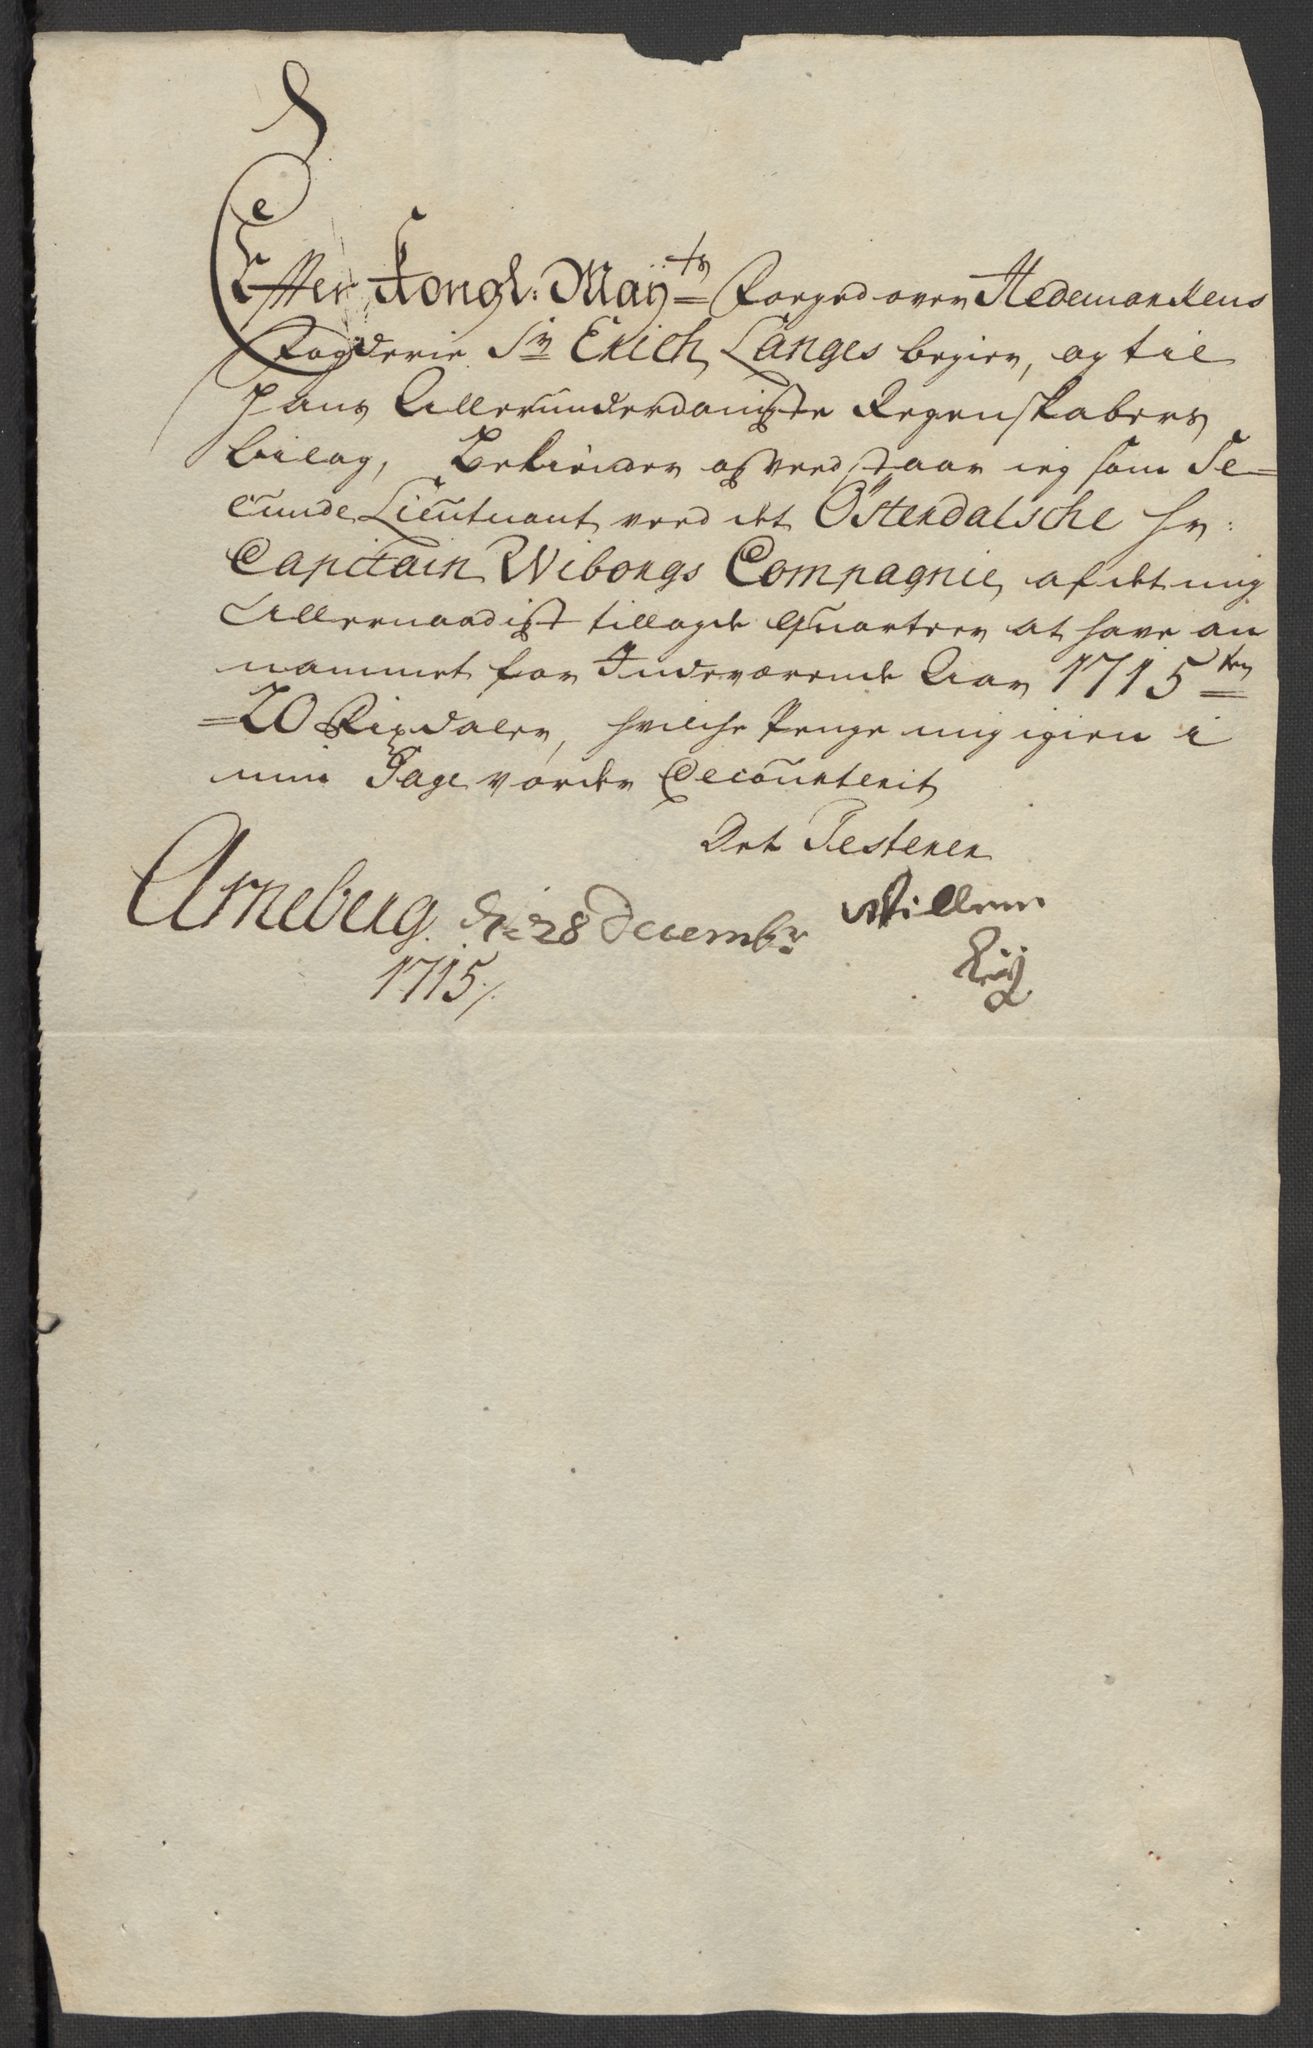 Effter Kongl: May:ts Foeged over Hedemarkens
Fogderie Sr Erich Langes begier, og til
hans Allerunderdanigste Regenskabers
bilag, Bekiender og vedstaar ieg som Se-
cunde Lieutnant ved det Østerdalsche Hr:
Capitain Wiborgs Compagnie, af det mig
Allernaadigst tillagde Quarteer at have an
nammet for Indeværende Aar 1715ten
20 Rixdaler, hvilche Penge mig igien i
min Gage vorder Decourterit
Det Testerer
Arneberg. de 28 Decembr Willem
1715/.